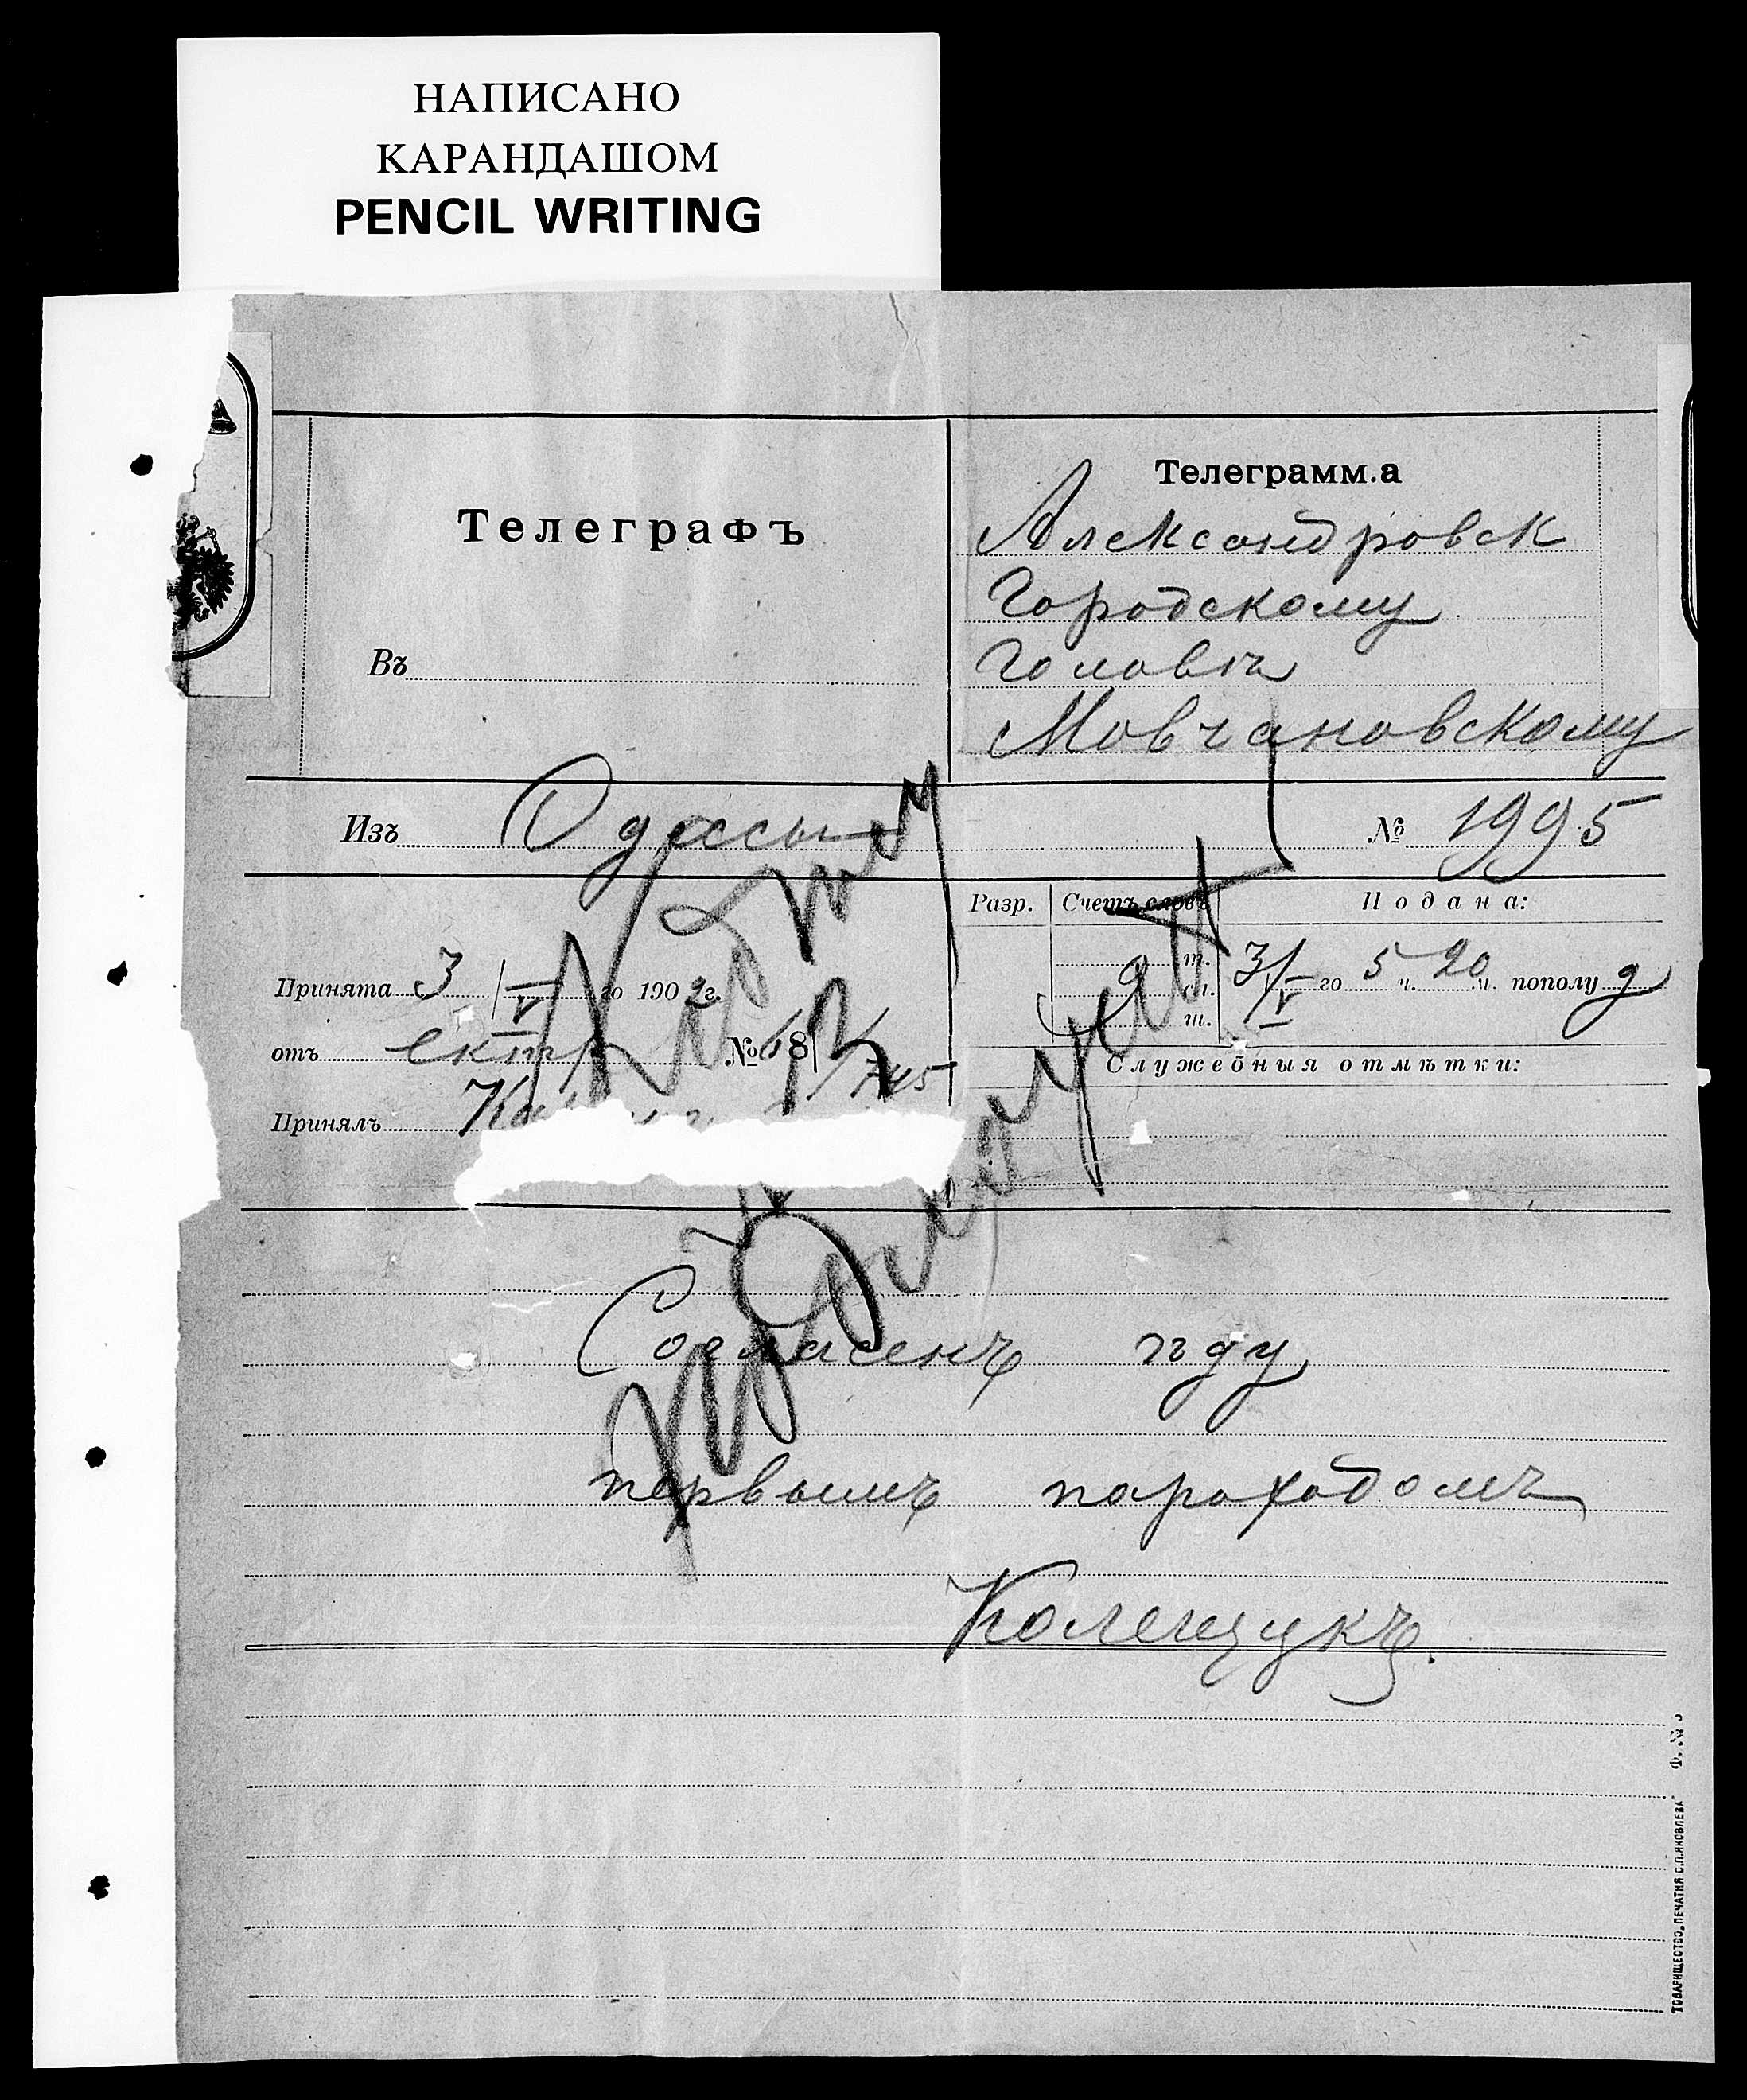 НАПИСАНО
КАРАНДАШОМ
PENCIL WRITING
Телеграфъ
Въ
Телеграмм.а
Александровск
Городскому
Головѣ
Мовчановскому
Изъ Одессы
№ 1995
Разр. Счетъ словъ Подана:
Принята 3/V го 1902 г.
т.
9 сл.
ш.
3/V го 5 ч. 20 м. пополу д
отъ №
Служебныя отмѣтки:
Принялъ
Согласенъ ѣду
первымъ пароходомъ
Колещукъ.
Ф. №
ТОВАРИЩЕСТВО „ПЕЧАТНЯ С.П.ЯКОВЛЕВА"